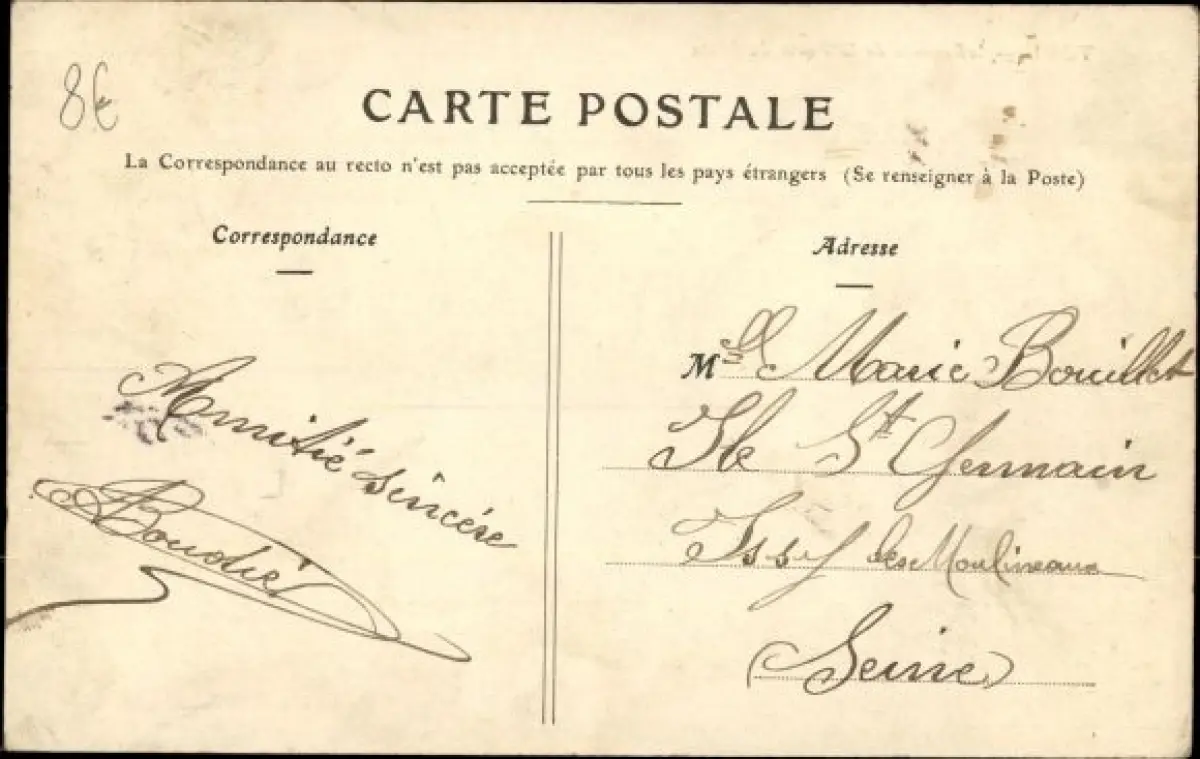 8€
CARTE POSTALE
La Correspondance au recto n'est pas acceptée par tous les pays étrangers (Se renseigner à la Poste)
Correspondance
Amitié sincére
Boudié
Adresse
Mlle Marie Bouillet
Ile St Germain
Issy les Moulineaux
(Seine)